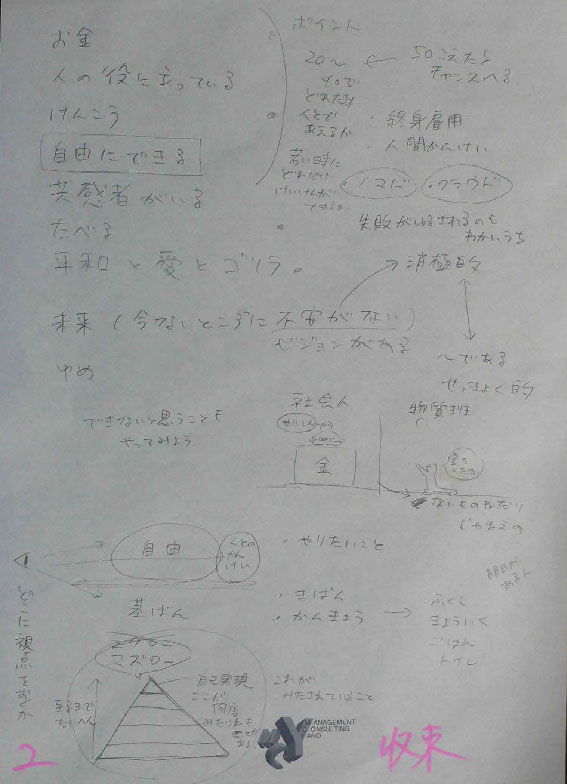 お金
人の役に立っている
けんこう
自由にできる
共感者がいる
たべる
平和と愛とゴリラ。
未来(今ないところに不安がない)
ビジョンがある
ゆめ
できないと思うことも
やってみよう
ポイント
20〜
40で
どれだけ
人と
あえるか
50こえたら
チャンスへる
・終身雇用
・人間かんけい
若い時に
どれだけ
けいけんが
できるか
・ノマド
・クラウド
失敗が許されるのも
わかいうち
消極的
〜である
せっきょく的
社会人
金
物質班
ないものねだり
じゃなくて
自由
人との
かん
けい
・やりたいこと
基ばん
・きばん
・かんきょう
ふくし
きょういく
ごはん
トイレ
どこに視点をおくか
マズロー
自己実現
ここが
何度
これが
みたされていること
MANAGEMENT
CONSULTING
YANO
2
収束